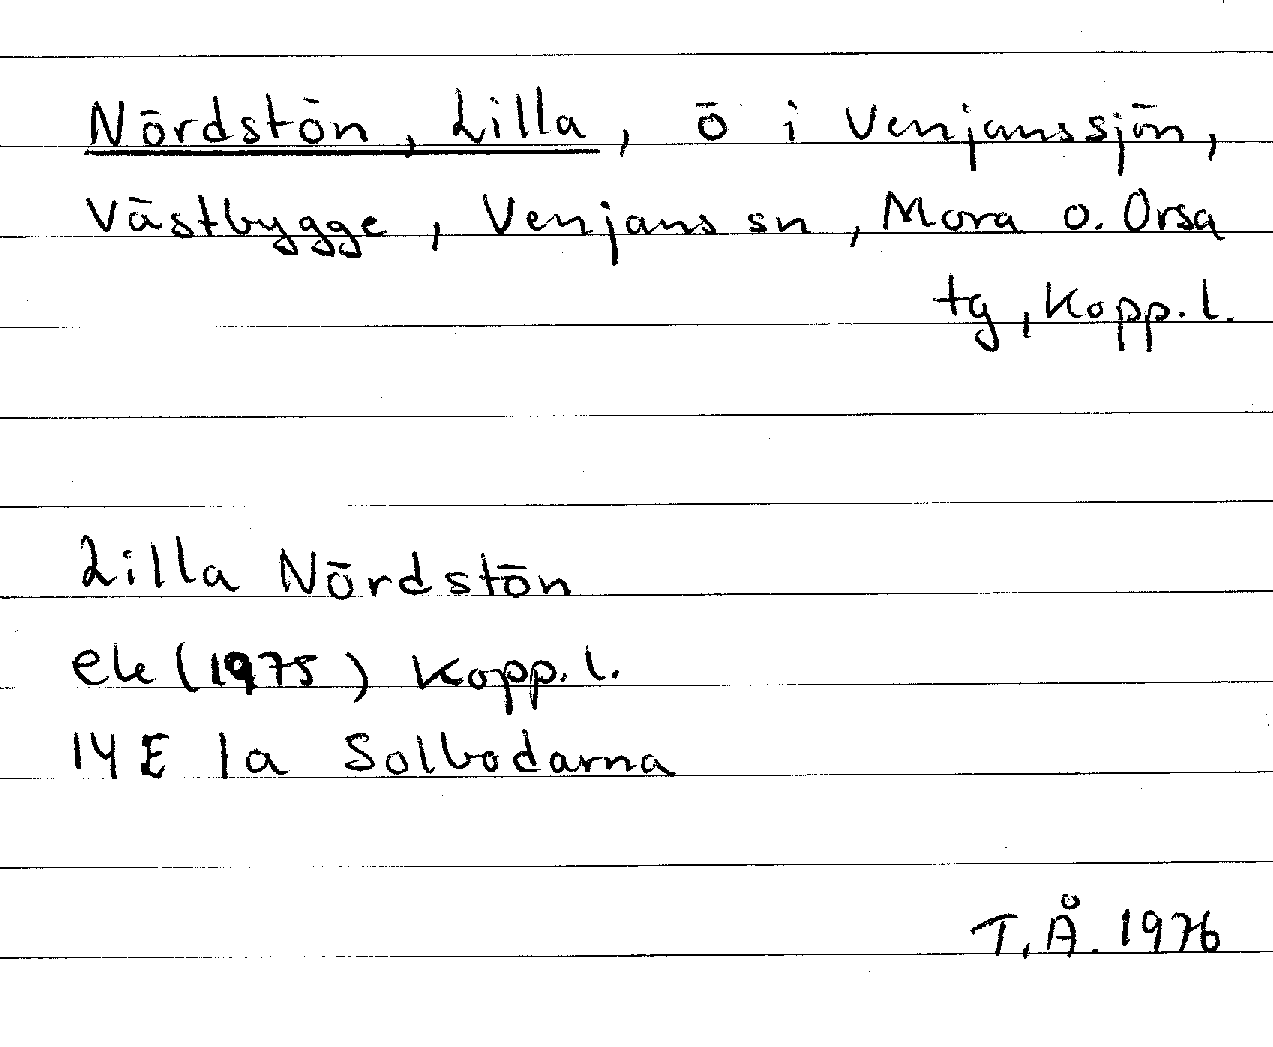 Nördstön, Lilla, ö i Venjanssjön,
Västbygge, Venjans sn, Mora o. Orsa
tg, Kopp. l.
Lilla Nördstön
ek (1975) Kopp. l.
14 E 1a Solbodarna
T. Å. 1976